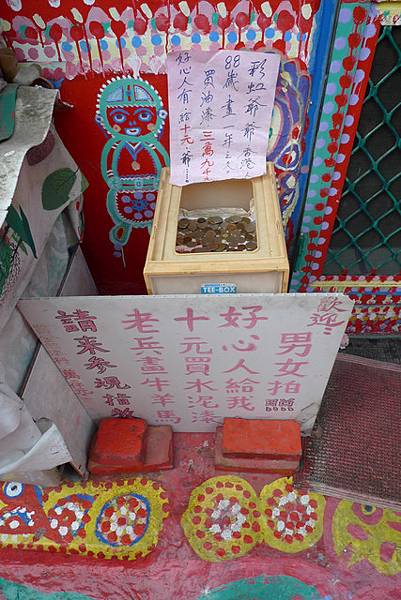 彩虹爺爺香港人
88歲畫一年之久
買油漆三萬九千
好心人有給十元爺
TEE-BOX
歡迎
男女拍
好心人給我
十元買水泥漆
老兵畫牛羊馬
請來參观指教